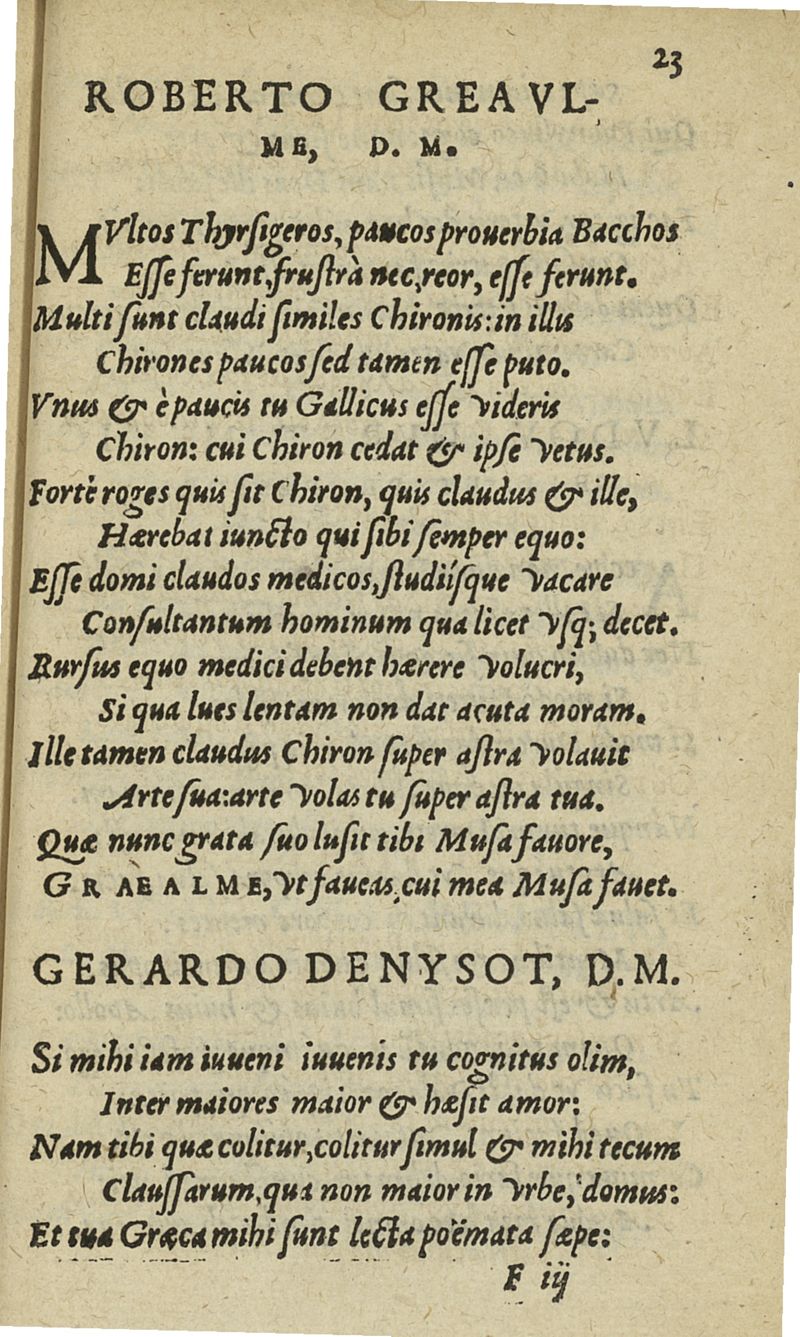 23
ROBERTO GREAVL-
ME, D. M.
MVltos Thyrsigeros, paucos prouerbia Bacchos
Esse ferunt, frustrà nec, reor, esse ferunt.
Multi sunt claudi similes Chironis: in illis
Chirones paucos sed tamen esse puto.
Vnus & è paucis tu Gallicus esse videris
Chiron: cui Chiron cedat & ipse vetus.
Fortè roges quis sit Chiron, quis claudus & ille,
Hærebat iuncto qui sibi semper equo:
Esse domi claudos medicos, studiísque vacare
Consultantum hominum qua licet vsq; decet.
Rursus equo medici debent hærere volucri,
Si qua lues lentam non dat acuta moram.
Ille tamen claudus Chiron super astra volauit
Arte sua: arte volas tu super astra tua.
Quæ nunc grata suo lusit tibi Musa fauore,
GRÆALME, vt faueas, cui mea Musa fauet.
GERARDO DENYSOT, D.M.
Si mihi iam iuueni iuuenis tu cognitus olim,
Inter maiores maior & hæsit amor:
Nam tibi quæ colitur, colitur simul & mihi tecum
Claussarum, qua non maior in vrbe, domus:
Et tua Græca mihi sunt lecta poëmata sæpe:
F iij